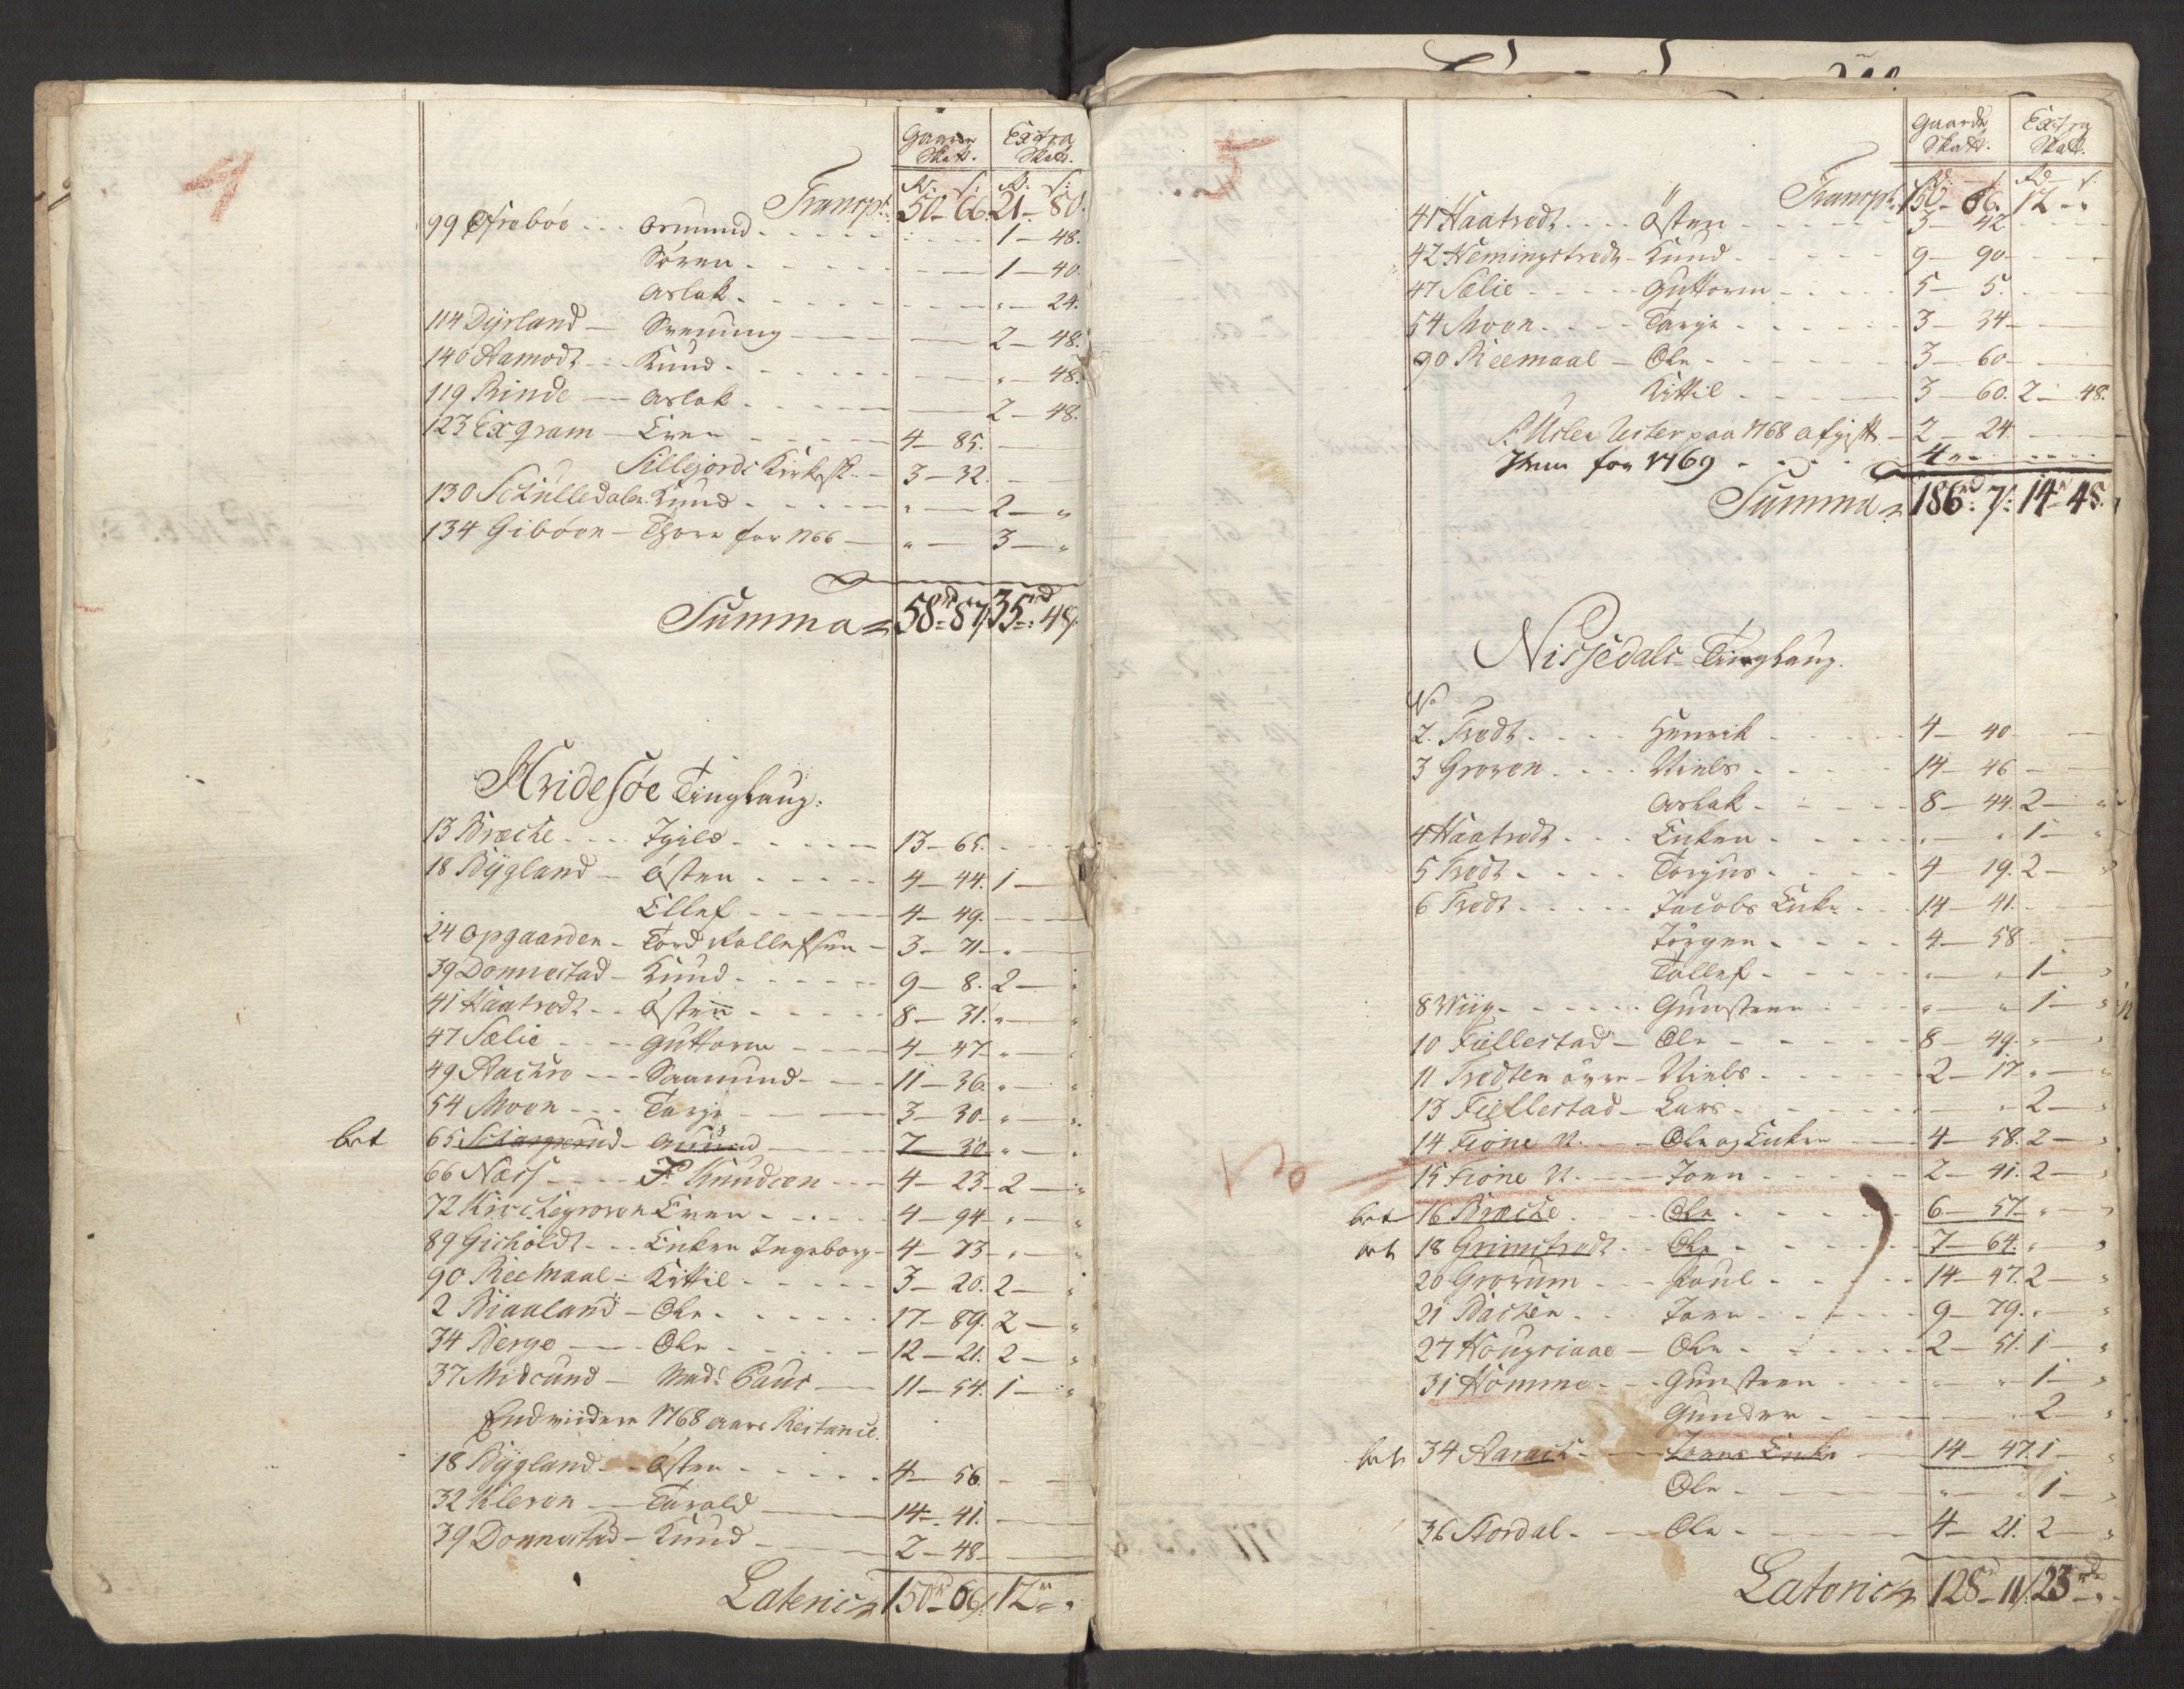 4
Gaarde Skatt. Extra Skatt.
Rd. s. Rd. s.
Transpt. 50 - 66. 21 - 80.
99 Ofrebøe - Osmund 1 - 48.
Søren 1 - 40.
Aslak " - 24.
114 Dyrland - Svenung 2 - 48.
140 Aamodt - Knud " - 48.
119 Rinde - Aslak 2 - 48.
123 Exgram - Even 4 - 85.
Sillejords Kirke 3 - 32.
130 Schulledalen Knud " - 2 - "
134 Gibøen - Thore for 1766 " - 3 - "
Summa 58 rd 87 s 35 rd 48 s
Hvidesøe Tinglaug.
13 Bræche - Igild 13 - 65.
18 Bygland - Østen 4 - 44. 1 -
Ellef 4 - 49.
24 Opgaarden - Tord Rollefsen 3 - 71 - "
39 Donnestad - Knud 9 - 8. 2 - "
41 Haatvedt - Østen 8 - 31. "
47 Sælie - Guttorm 4 - 47 - "
49 Aachre - Saamund 11 - 36. "
54 Moen - Tarje 3 - 30 - "
bet 65 - Amund 7 - 30 - "
66 Næss - P. Knudsen 4 - 23 - 2 - "
72 Kirchegroven Even 4 - 94 - "
89 Gicholdt - Enken Ingeborg 4 - 73 - "
90 Reemaal - Kittil 3 - 20. 2 - "
2 Biaaland - Ole 17 - 89. 2 - "
34 Berge - Ole 12 - 21. 2 - "
37 Midsund - Mads Paus 11 - 54. 1 - "
Endviidere 1768 Aars Restance.
18 Bygland - Østen 4 - 56.
32 Kleven - Tarald 14 - 41.
39 Donnestad - Knud 2 - 48 -
Lateris 150 rd 66 s 12 rd "
5
Gaarde Skatt. Extra Skatt.
Rd. s. Rd. s.
Transpt. 150 - 66. 12 - "
41 Haatvedt - Østen 3 - 42
42 Hemingstvedt - Knud 9 - 90 -
47 Sælie - Guttorm 5 - 5.
54 Moen - Tarje 3 - 34 -
90 Reemaal - Ole 3 - 60 -
Kittil 3 - 60. 2 - 48.
paa 1768 2 - 24.
for 1769 4 "
Summa 186 rd 7 s 14 rd 48 s
Nissedals Tinglaug.
No
2. Tvedt - Henrik 4 - 40
3 Groven - Niels 14 - 46 -
Aslak 8 - 44. 2 - "
4 Haatvedt - Enken " - " 1 - "
5 Tvedt - Torjus 4 - 19. 2 - "
6 Tvedt - Jacobs Enke 14 - 41.
Jørgen 4 - 58
Tollef " - " 1 - "
8 Wiig - Gunsteen " - " 1 - "
10 Fiellestad - Ole 8 - 49. " - "
11 Tvedten øvre - Niels 2 - 17. " - "
13 Fiellestad - Lars - " 2 - "
14 Fione N. - Ole og Enken 4 - 58. 2 - "
15 Fione N. - Joen 2 - 41. 2 - "
bet 16 Bræche - Ole 6 - 57 - " - "
bet 18 Grimstvedt - Ole 7 - 64. " - "
20 Grovum - Poul 14 - 47. 2 - "
21 Bachen - Joen 9 - 79. " - "
27 Hougsiaae - Ole 2 - 51. 1 - "
31 Homme - Gunsteen " - " 1 - "
Gunder - " 2 - "
bet 34 - Joens Enke 14 - 47. 1 - "
Ole " - " 1 - "
36 Nordal - Ole 4 - 21. 2 - "
Lateris 128 rd 11 s 23 rd "